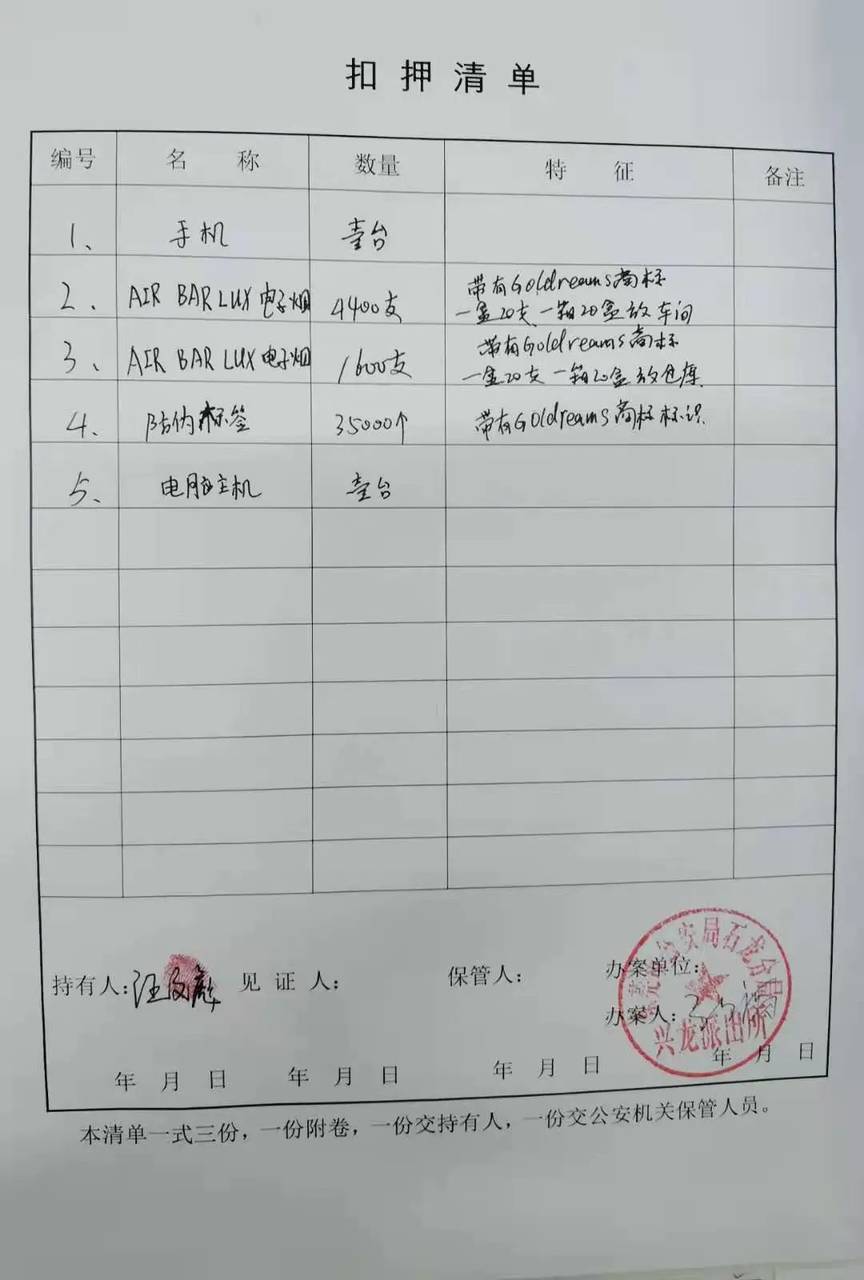 扣押清单
编号 名称 数量 特征 备注
1、 手机 壹台
2、 AIR BAR LUX 电子烟 4400支 带有Goldreams商标
一盒20支 一箱20盒 放车间
3、 AIR BAR LUX 电子烟 1600支 带有Goldreams商标
一盒20支 一箱20盒 放仓库
4、 防伪标签 35000个 带有Goldreams商标标识
5、 电脑主机 壹台
持有人: 见证人: 保管人: 办案单位:
办案人:
公安局石龙分局
兴龙派出所
年 月 日 年 月 日 年 月 日 年 月 日
本清单一式三份，一份附卷，一份交持有人，一份交公安机关保管人员。